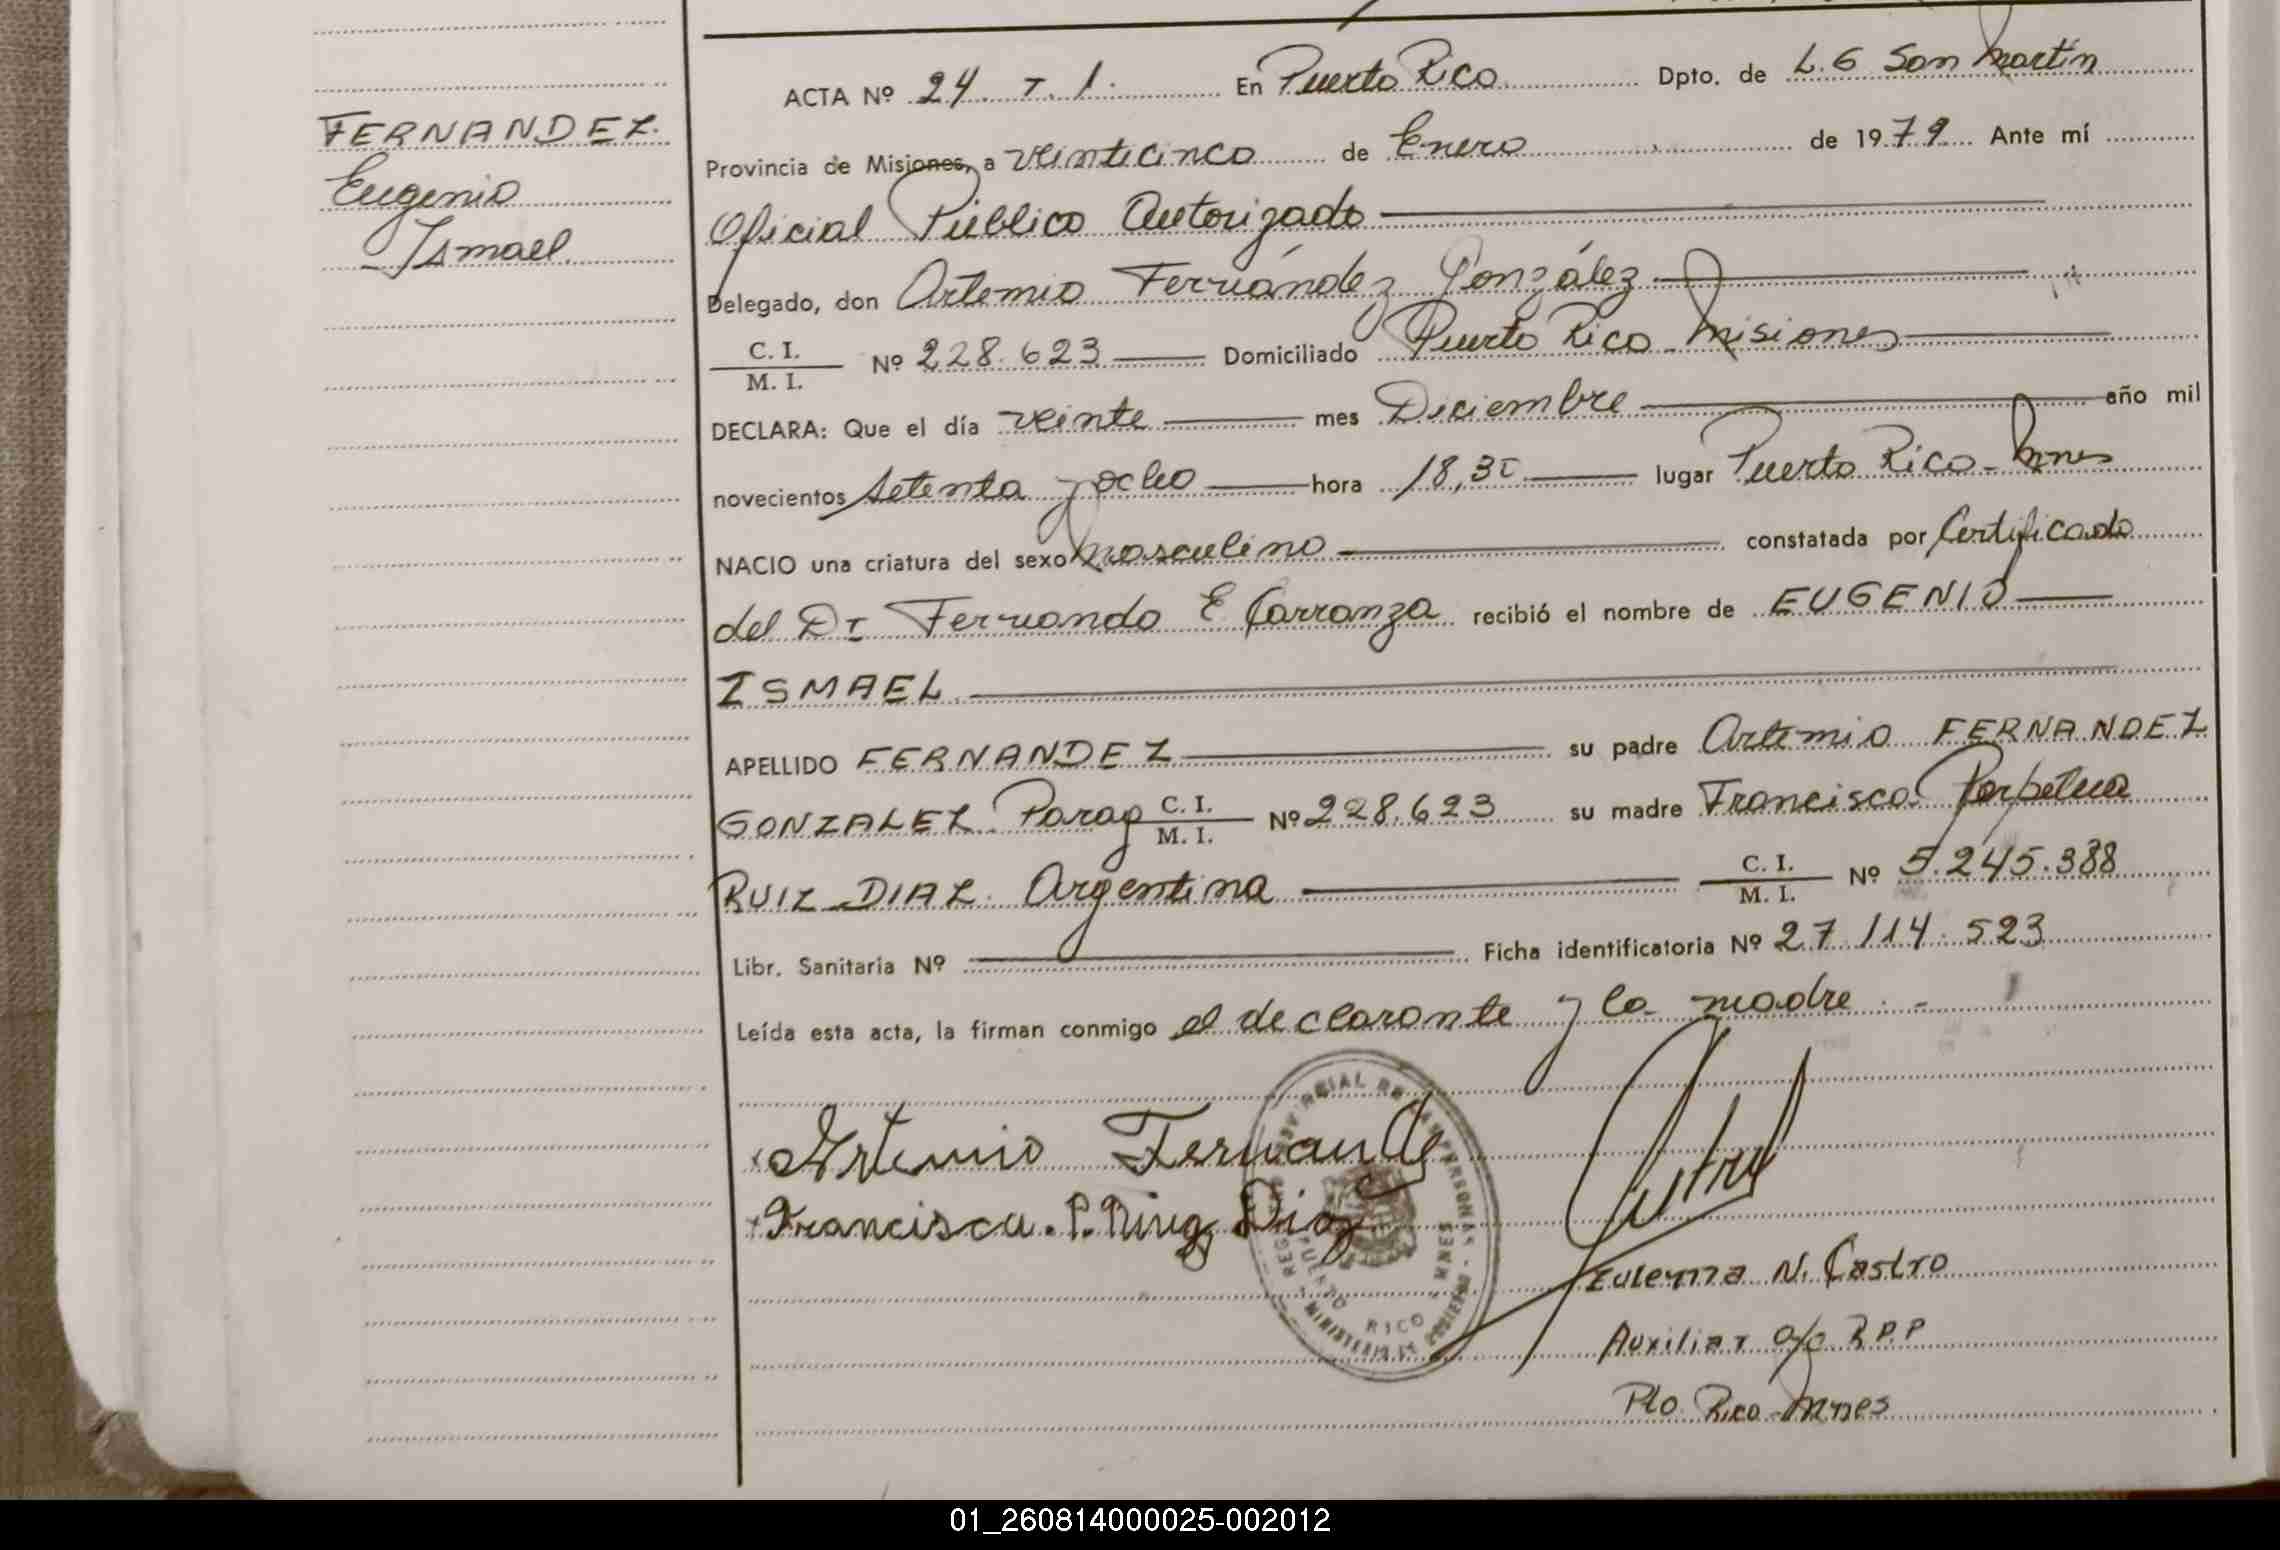 FERNANDEZ.
Eugenio
Ismael.
ACTA Nº 24. T. 1. En Puerto Rico Dpto. de L. G San Martín
Provincia de Misiones, a veinticinco de Enero de 1979 Ante mí
Oficial Público Autorizado
Delegado, don Artemio Fernández González
C. I.
M. I. Nº 228.623 Domiciliado Puerto Rico Misiones
DECLARA: Que el día veinte mes Diciembre año mil
novecientos setenta y ocho hora 18,30 lugar Puerto Rico - Mnes
NACIO una criatura del sexo masculino constatada por Certificado
del Dr Fernando E Carranza recibió el nombre de EUGENIO
ISMAEL
APELLIDO FERNANDEZ su padre Artemio FERNANDEZ
GONZALEZ Parag C. I.
M. I. Nº 228.623 su madre Francisca Perpetua
RUIZ DIAZ. Argentina C. I.
M. I. Nº 5.245.388
Libr. Sanitaria Nº Ficha identificatoria Nº 27.114.523
Leída esta acta, la firman conmigo el declarante y la madre. -
Artemio Fernandez
Francisca. P. Ruiz Diaz
PUERTO RICO
N. Castro
Auxiliar a/c R.P.P
Pto. Rico - Mnes
01_260814000025-002012